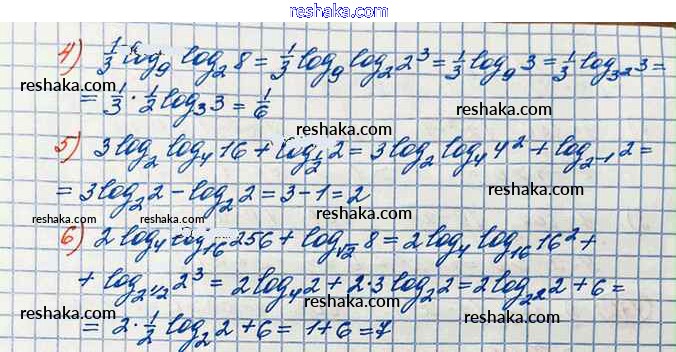 www.reshaka.ru
4) 1/3 log₉ log₂ 8 = 1/3 log₉ log₂ 2³ = 1/3 log₉ 3 = 1/3 log₃² 3 =
reshaka.com
= 1/3 · 1/2 log₃ 3 = 1/6
reshaka.com
reshaka.com
5) 3 log₂ log₄ 16 + log½ 2 = 3 log₂ log₄ 4² + log₂₋₁ 2 =
= 3 log₂ 2 - log₂ 2 = 3 - 1 = 2
reshaka.com
reshaka.com
reshaka.com
reshaka.com
6) 2 log₄ log₁₆ 256 + log√2 8 = 2 log₄ log₁₆ 16² +
+ log₂1/2 2³ = 2 log₄ 2 + 2·3 log₂ 2 = 2 log₂2 2 + 6 =
reshaka.com
= 2 · 1/2 log₂ 2 + 6 = 1 + 6 = 7
reshaka.com
reshaka.com